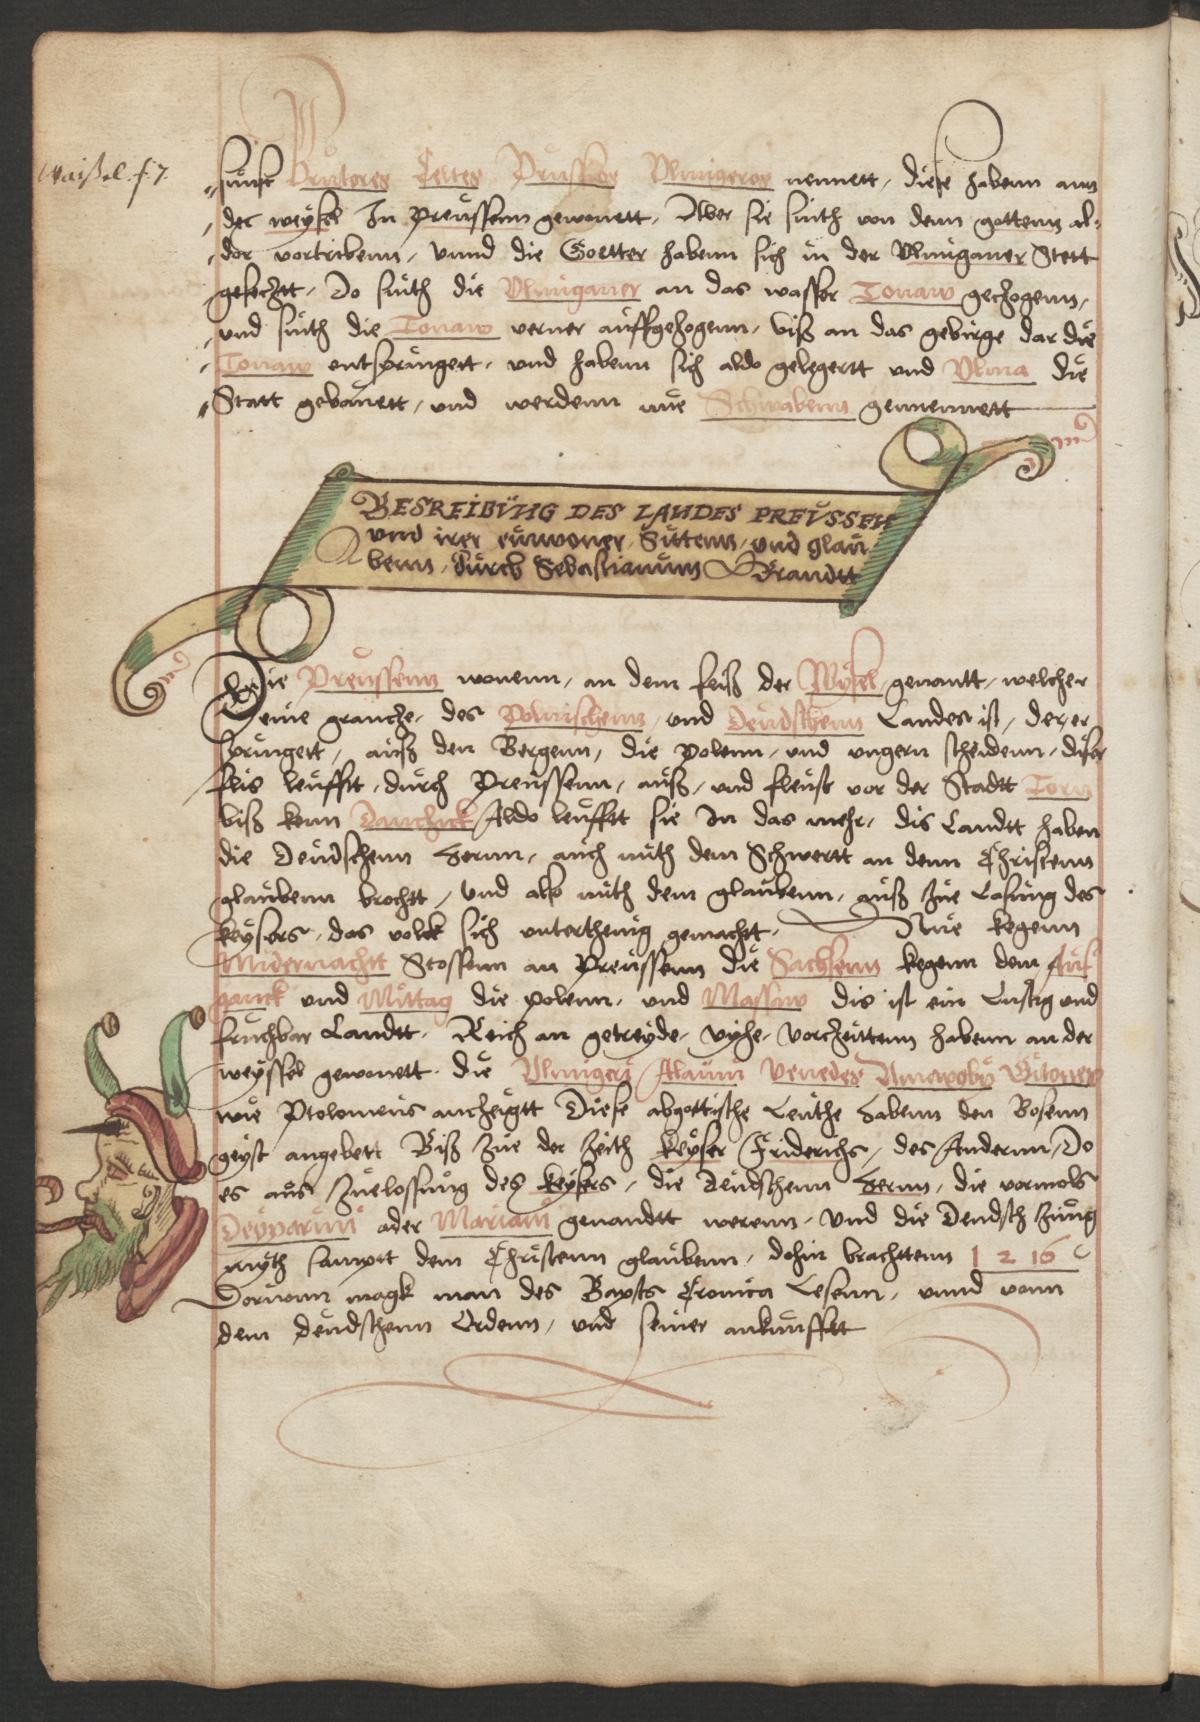 Waißel. f. 7.
sunst Brutores Celtes Prussos Ulmigeros nennett, diese habenn ann
der weysel In Preussenn gewonett, Aber sie sinth von denn gottenn al-
dor vortribenn, unnd die Goetter habenn sich in der Ulmiganer Stett
gesechtt, Do sinth die Ulmiganer an das wasser Tonaw gezhogenn,
und sinth die Tonaw verner auffgezhogenn, biß an das gebirge dar die
Tonaw entspringett, und habenn sich aldo gelegertt und Ulma die
Statt gebauett, und werdenn nue Schwabenn gennennett
BESREIBUNG DES LANDES PREUSSEN
und irer einwoner, Sittenn, und glau
benn, durch Sebastianum Brandtt
Die Preussenn wonenn, an dem fliß der Wysel genantt, welcher
eine grancze, des Polnischenn, und Deudschenn Landes ist, der, er
springett, auß den Bergenn, die polenn, und ungern scheidenn, diser
flis leufftt, durch Preussenn, auß, und fleust vor der Stadtt Torn
biß kenn Danczick Aldo leufftt sie In das mehr, dis Landtt haben
die Deudschenn Herrnn, auch mith dem Schwertt an denn Christenn
glaubenn brochtt, und also mith dem glaubenn, auß zue Lasung des
keysers, das volck sich unterthenig gemachtt. Nue kegenn
Midernachtt Stossenn an Preussenn die Sachsenn kegenn dem Auf
ganck und Mittag die polenn, und Massaw dis ist ein Lustig und
fruchbar Landtt. Reich an getreyde, vyhe, vorzeittenn haben an der
weyssel gewonett. die Ulmigeri Alauni Venedes Amaxoby Gitones
wie Ptolomeus anczeigtt Diese abgottische Leuthe Habenn den Bosenn
geyst angebett Biß zue der zeith Keyser Friderichs, des Andernn, Do
es aus zuelossung des keysers, die deudschenn Hernn, die vormols
Deyparuni ader Mariani genandtt werenn, Und die Deudsch zung
myth sampt dem Christenn glaubenn, dohin brachttenn 1216
Dorvonn magk man des Bapsts Cronica Lesenn, unnd vonn
dem deudschenn Ordenn, und seiner ankunfftt